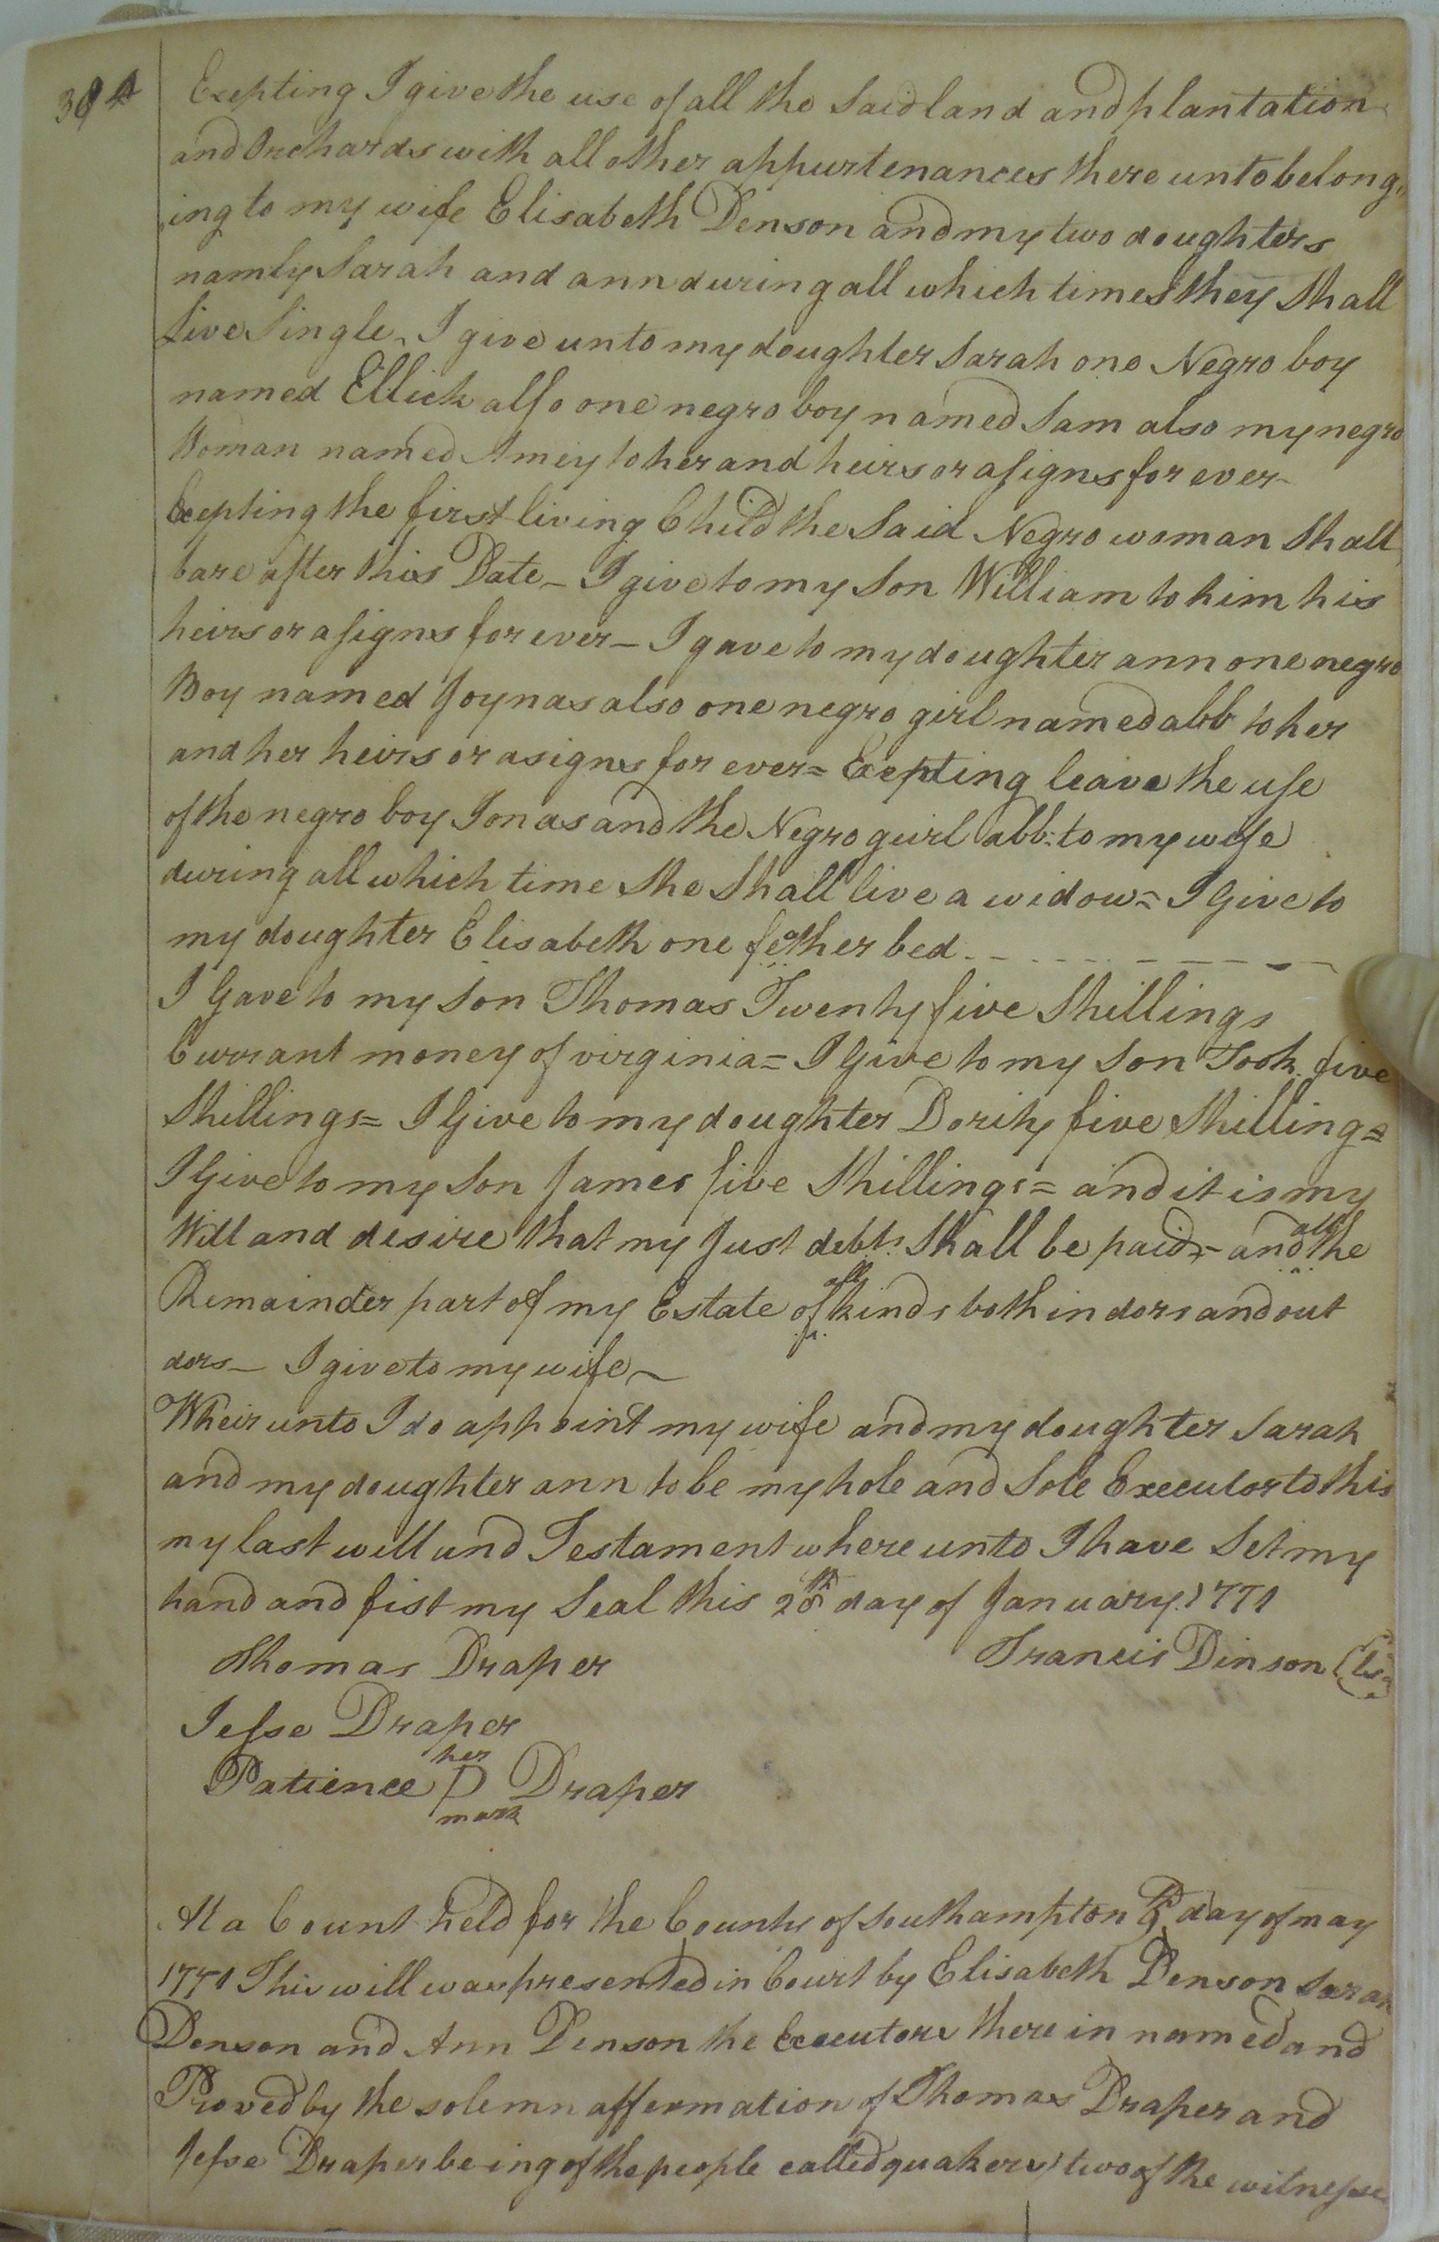 384
Excepting I give the use of all the Said land and plantation
and Orchards with all other appurtenances there unto belong,,
,,ing to my wife Elisabeth Denson and my two doughters
namly Sarah and ann during all which times they Shall
Live Single, I give unto my doughter Sarah one Negro boy
named Ellick also one negro boy named Sam also my negro
Woman named Amey to her and heirs or asigns for ever -
Excepting the first living Child the Said Negro woman Shall
bare after this Date - I give to my Son William to him his
heirs or asigns for ever - I gave to my doughter ann one negro
Boy named Joynas also one negro girl named abb to her
and her heirs or asigns for ever = Excepting leave the use
of the negro boy Jonas and the Negro guirl abb: to my wife
during all which time She Shall live a widow = I Give to
my doughter Elisabeth one fether bed
I Gave to my Son Thomas Twenty five Shillings
Currant money of virginia = I Give to my Son five
Shillings = I Give to my doughter Dority five Shilling =
I Give to my Son James five Shillings = and it is my
Will and desire that my Just debts Shall be paid - and all the
Remainder part of my Estate of all kinds both in dors and out
dors - I give to my wife ~
Wheir unto I do appoint my wife and my doughter Sarah
and my doughter ann to be my hole and Sole Executor to this
my last will and Testament where unto I have Set my
hand and fist my Seal this 28th day of January 1771
Thomas Draper Francis Dinson (Ls)
Jesse Draper
Patience her P mark Draper
At a Count held for the County of Southampton day of may
1771 This will was presented in Court by Elisabeth Denson Sarah
Denson and Ann Denson the Executors there in named and
Proved by the solemn affermation of Thomas Draper and
Jesse Draper being of the people called quakers) two of the witnesses